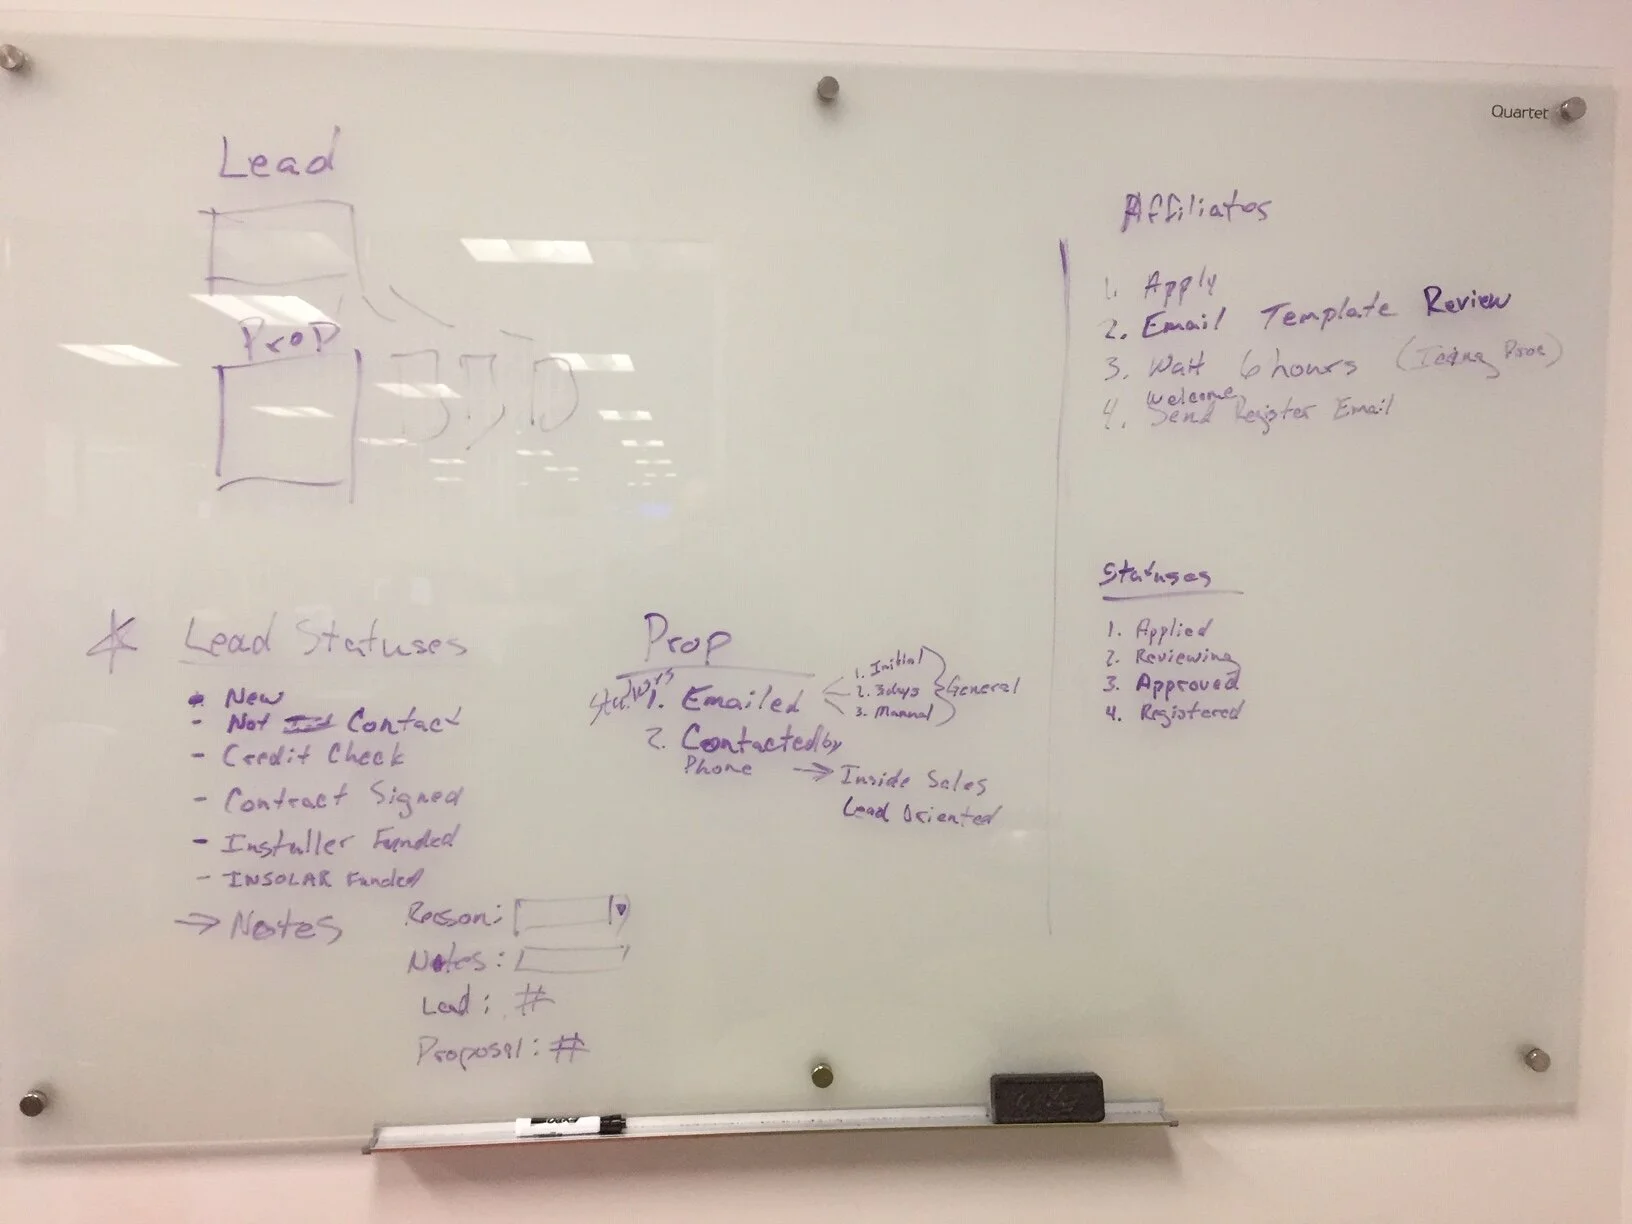 Quartet
Lead
Prop
Affiliates
1. Apply
2. Email Template Review
3. Wait 6 hours
Welcome
4. Send Register Email
Statuses
1. Applied
2. Reviewing
3. Approved
4. Registered
Lead Statuses
- New
- Not Contact
- Credit Check
- Contract Signed
- Installer Funded
- INSOLAR Funded
→ Notes
Reason:
Notes:
Lead: #
Proposal: #
Prop
Status
1. Emailed
1. Initial
2. 3days
3. Manual
General
2. Contacted by
Phone → Inside Sales
Lead Oriented
EXPO